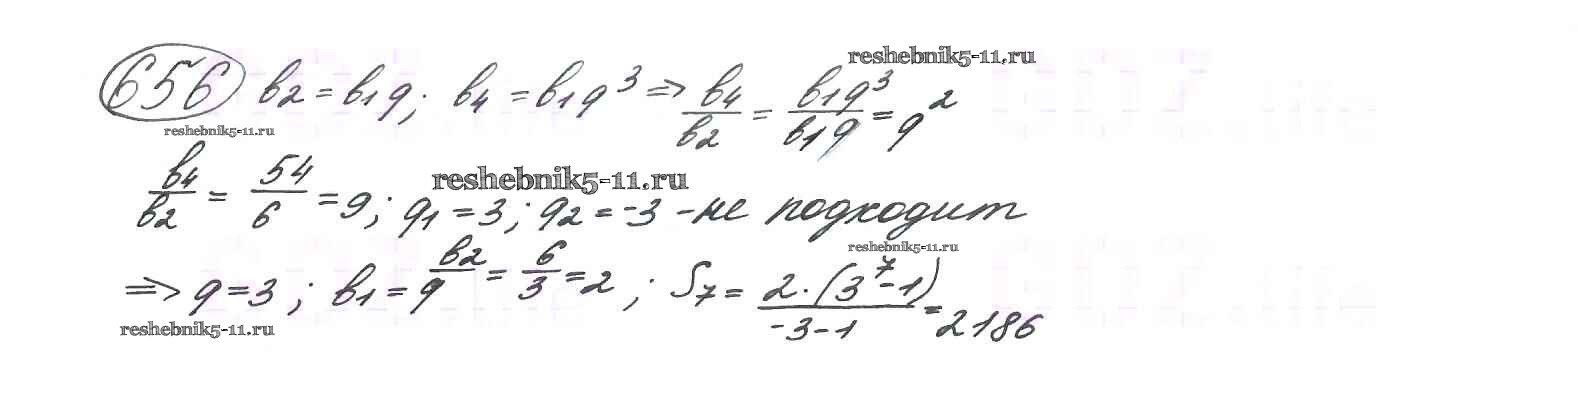 656 b₂ = b₁q; b₄ = b₁q³ => b₄/b₂ = b₁q³/b₁q = q²
reshebnik5-11.ru
reshebnik5-11.ru
b₄/b₂ = 54/6 = 9; q₁ = 3; q₂ = -3 - не подходит
reshebnik5-11.ru
reshebnik5-11.ru
=> q = 3; b₁ = b₂/q = 6/3 = 2; S₇ = 2·(3⁷-1)/-3-1 = 2186
reshebnik5-11.ru